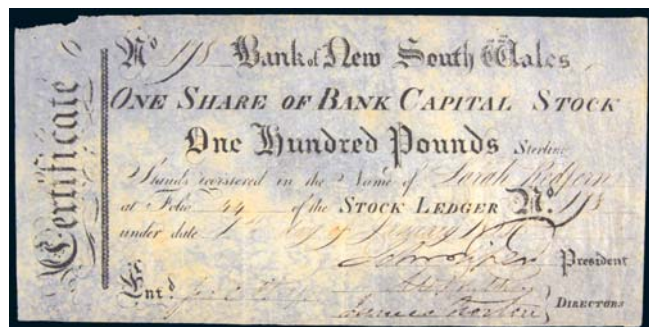 Certificate
No 198 Bank of New South Wales
ONE SHARE OF BANK CAPITAL STOCK
One Hundred Pounds Sterling
Stands registered in the Name of Sarah Redfern
at Folio 44 of the STOCK LEDGER No. 198
under date 1st day of January
President
Ent.d
DIRECTORS